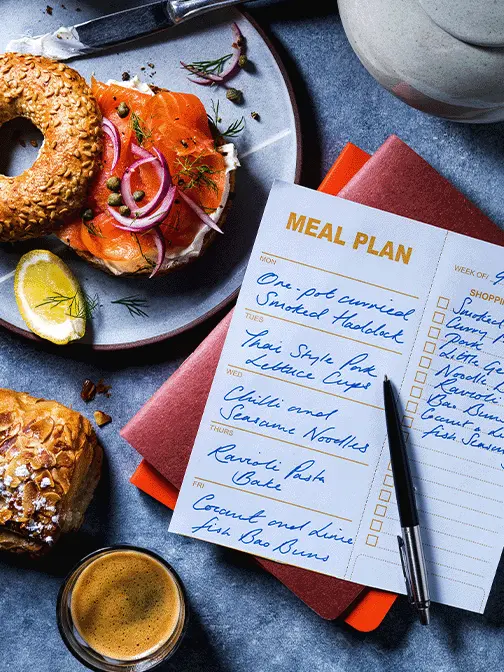 MEAL PLAN
MON
One-pot curried
Smoked Haddock
TUES
Thai Style Pork
Lettuce Cups
WED
Chilli and
Seasame Noodles
THURS
Ravioli Pasta
Bake
FRI
Coconut and Lime
fish Bao Buns
WEEK OF:
SHOPPING
Smoked
Curry P
Pork
Little Ge
Noodle
Ravioli
Bao Buns
fish Seasam